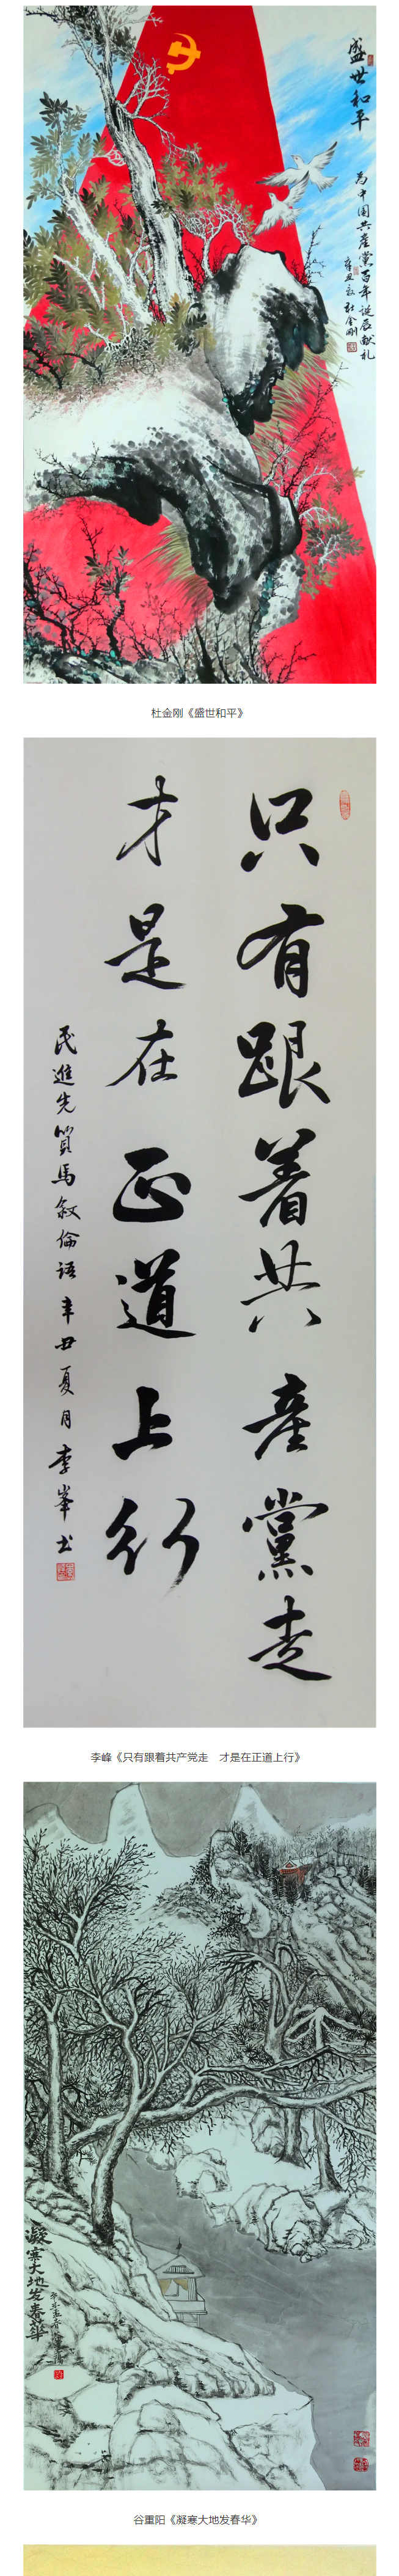 盛世和平
为中国共産黨百年诞辰献礼
辛丑夏杜金刚
杜金刚《盛世和平》
只有跟着共産黨走
才是在正道上行
民進先贤馬叙倫語辛丑夏月李峯书
李峰《只有跟着共产党走　才是在正道上行》
凝寒大地发春華
谷重阳《凝寒大地发春华》